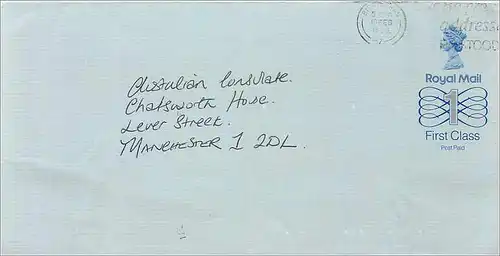 address
Royal Mail
1
First Class
Post Paid
Australian Consulate.
Chatsworth House.
Lever Street.
MANCHESTER 1 2DL.